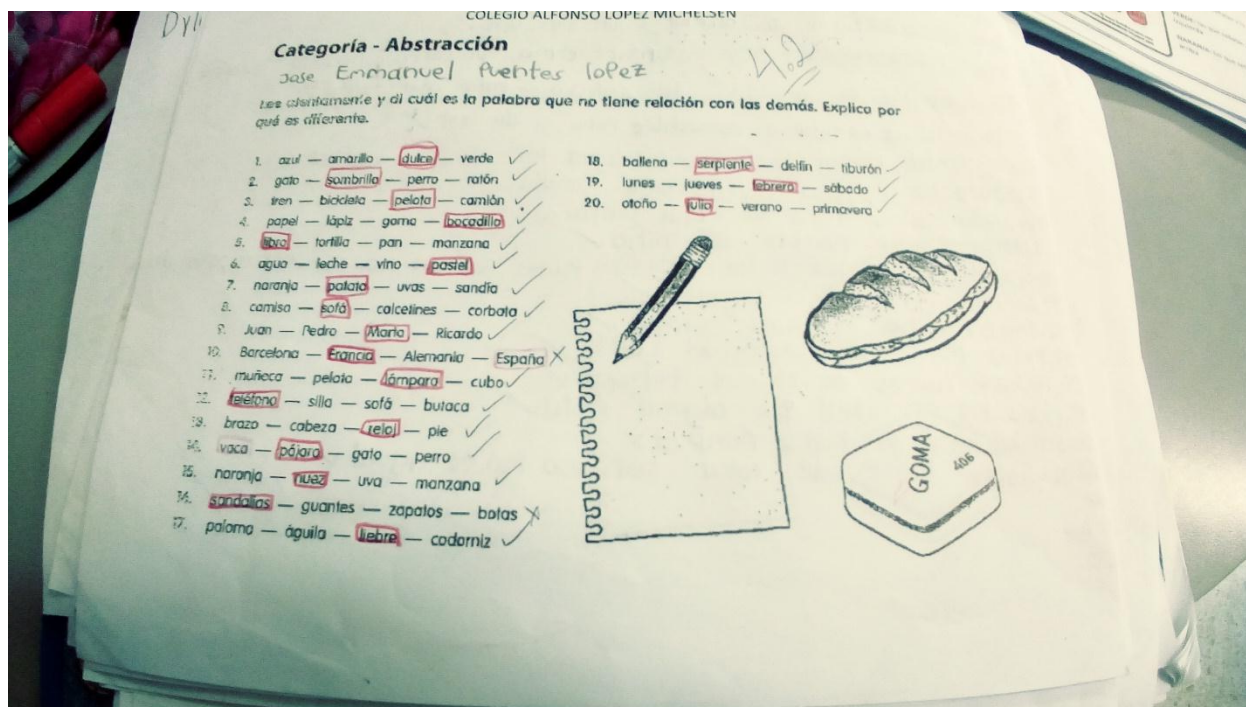 COLEGIO ALFONSO LOPEZ MICHELSEN
Categoría - Abstracción
4.2
Jose Emmanuel Puentes lopez
Lee atentamente y di cuál es la palabra que no tiene relación con las demás. Explica por
qué es diferente.
1. azul — amarillo — dulce — verde
2. gato — sombrilla — perro — ratón
3. tren — bicicleta — pelota — camión
4. papel — lápiz — goma — bocadillo
5. libro — tortilla — pan — manzana
6. agua — leche — vino — pastel
7. naranja — patata — uvas — sandía
8. camisa — sofá — calcetines — corbata
9. Juan — Pedro — Marta — Ricardo
10. Barcelona — Francia — Alemania — España
11. muñeca — pelota — lámpara — cubo
12. teléfono — silla — sofá — butaca
13. brazo — cabeza — reloj — pie
14. vaca — pájaro — gato — perro
15. naranja — nuez — uva — manzana
16. sandalias — guantes — zapatos — botas
17. paloma — águila — liebre — codorniz
18. ballena — serpiente — delfín — tiburón
19. lunes — jueves — febrero — sábado
20. otoño — julio — verano — primavera
GOMA
406